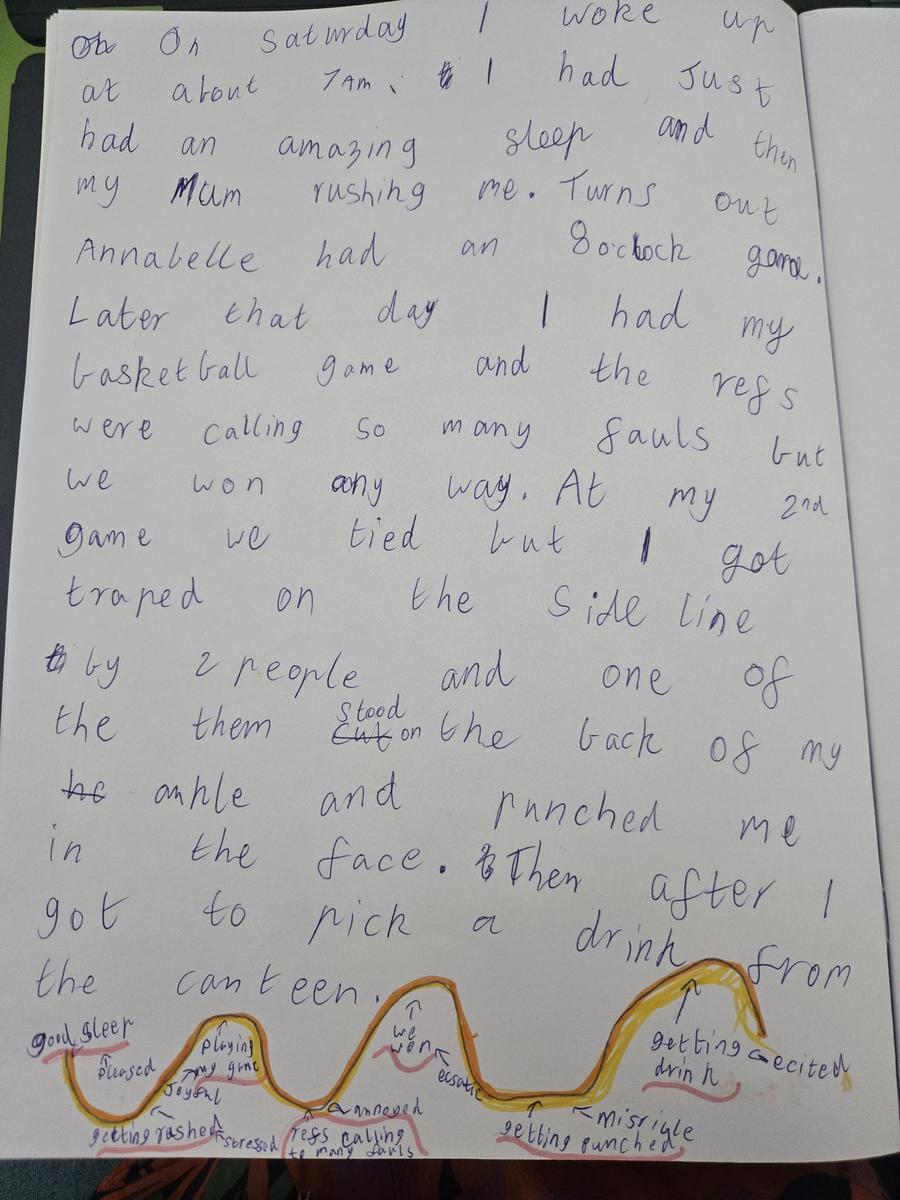 On On Saturday I woke up
at about 7am. I had Just
had an amazing sleep and then
my Mum rushing me. Turns out
Annabelle had an 8 o'clock game.
Later that day I had my
basketball game and the refs
were calling so many fauls but
we won any way. At my 2nd
game we tied but I got
traped on the Side line
by 2 people and one of
the them stood cut on the back of my
he ankle and punched me
in the face. Then after I
got to pick a drink from
the canteen.
good sleep
pleased
getting rushed
stressed
Joyful
playing my game
refs calling
to many fauls
annoyed
we
won
ecsatic
getting punched
misrible
getting
drink
ecited